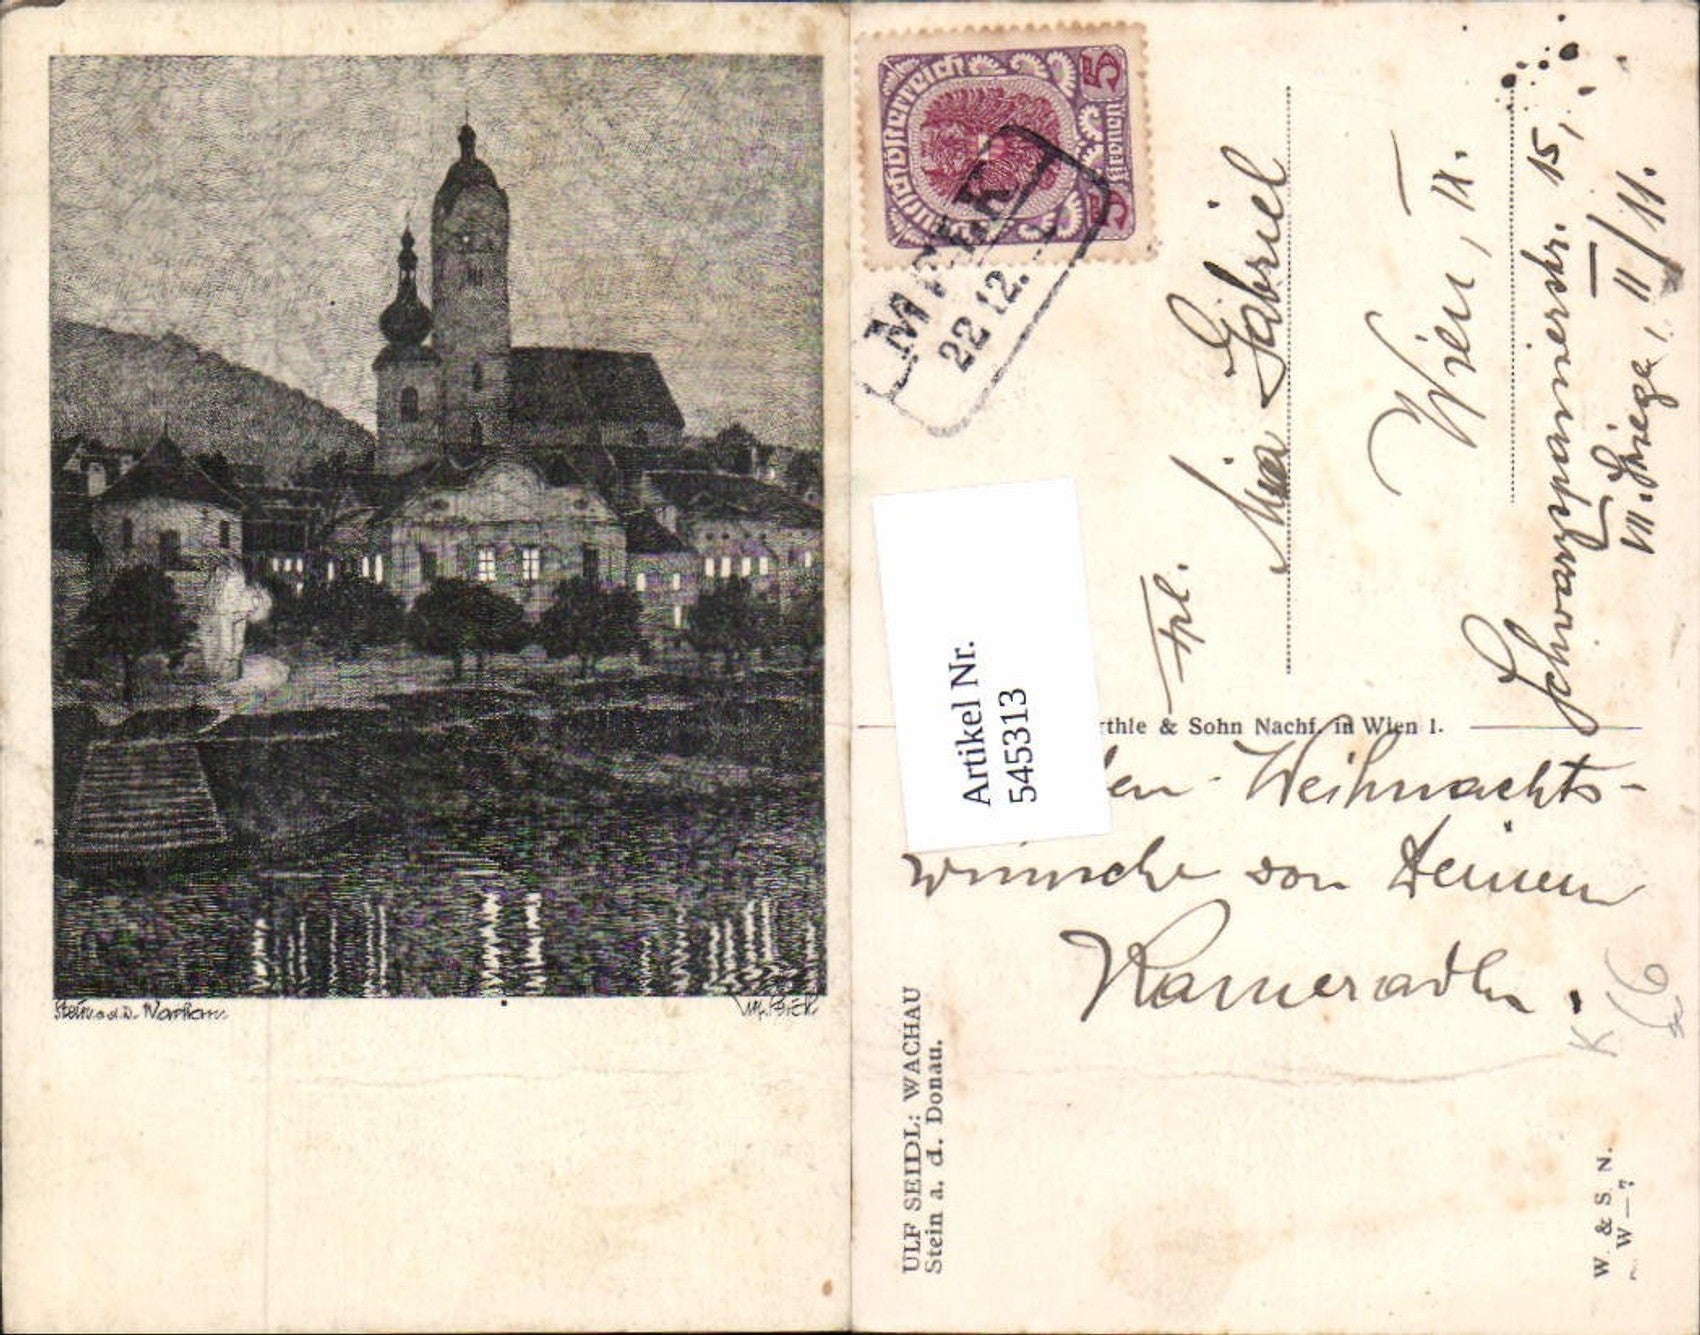 Stein a. d. Donau
Deutschösterreich
5 Kronen 5
MAUTERN
22 12.
Artikel Nr.
545313
Frl.
Mia Gabriel
Wien, II.
Schwarzspanierstr. 15,
VII. Stiege, II/11.
rthle & Sohn Nachf. in Wien I.
den Weihnachts-
wünsche von Deinem
Kameradln.
K 56
ULF SEIDL: WACHAU
Stein a. d. Donau.
W. & S. N.
W—7